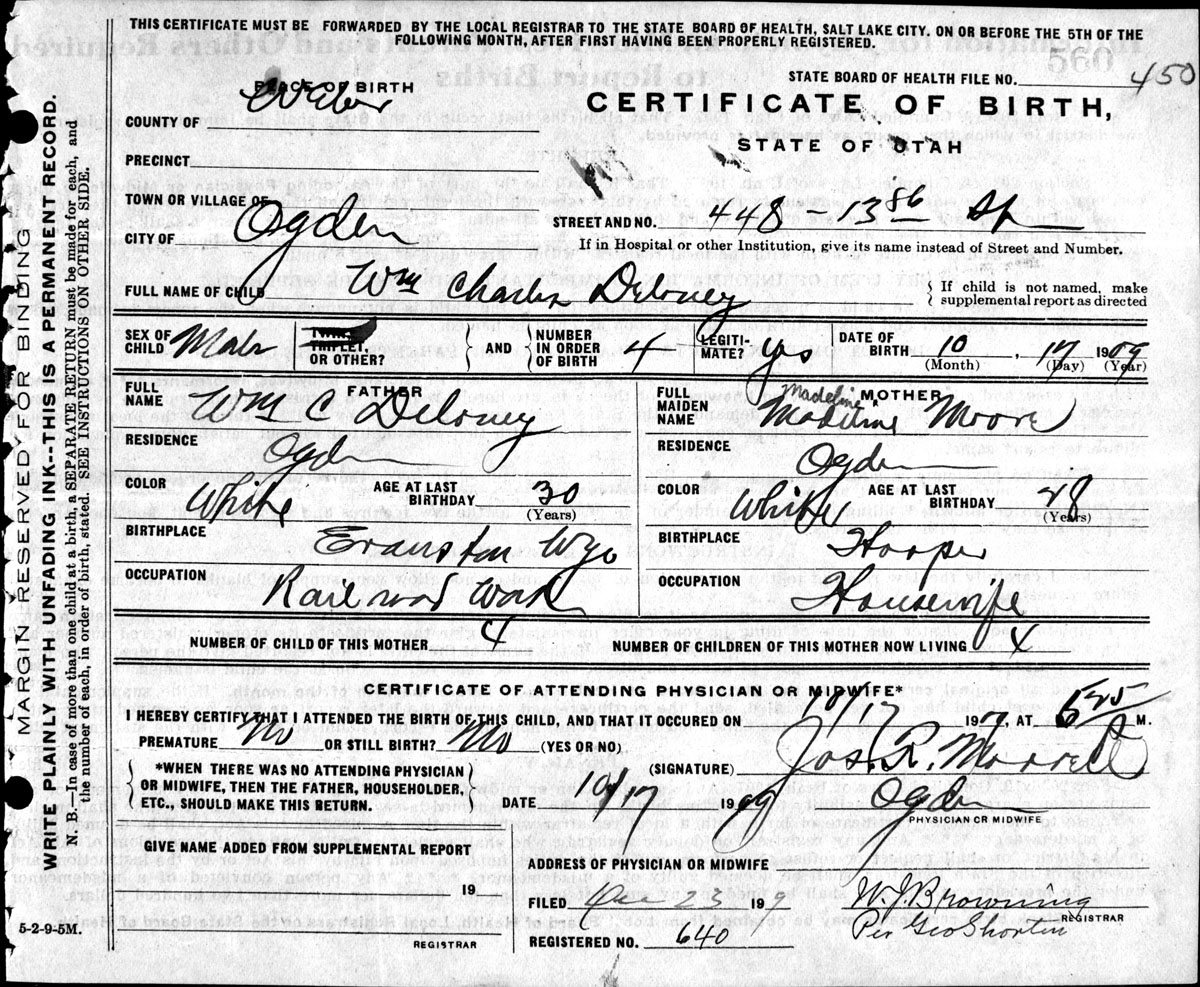 THIS CERTIFICATE MUST BE FORWARDED BY THE LOCAL REGISTRAR TO THE STATE BOARD OF HEALTH, SALT LAKE CITY. ON OR BEFORE THE 5TH OF THE
FOLLOWING MONTH, AFTER FIRST HAVING BEEN PROPERLY REGISTERED.
STATE BOARD OF HEALTH FILE NO. 450
PLACE OF BIRTH
CERTIFICATE OF BIRTH,
STATE OF UTAH
COUNTY OF Weber
PRECINCT
TOWN OR VILLAGE OF
STREET AND NO. 448 13th St
CITY OF Ogden
If in Hospital or other Institution, give its name instead of Street and Number.
FULL NAME OF CHILD Wm Charles Deloney
{ If child is not named, make
supplemental report as directed
SEX OF CHILD Male
TWIN, TRIPLET, OR OTHER?
} AND { NUMBER IN ORDER OF BIRTH 4
LEGITIMATE? Yes
DATE OF BIRTH 10, 17 1909
(Month) (Day) (Year)
FATHER
FULL NAME Wm C Deloney
RESIDENCE Ogden
COLOR White AGE AT LAST BIRTHDAY 30
(Years)
BIRTHPLACE Evanston Wyo
OCCUPATION Railroad Work
MOTHER
FULL MAIDEN NAME Madeline Moore
Madeline
RESIDENCE Ogden
COLOR White AGE AT LAST BIRTHDAY 28
(Years)
BIRTHPLACE Hooper
OCCUPATION Housewife
NUMBER OF CHILD OF THIS MOTHER 4
NUMBER OF CHILDREN OF THIS MOTHER NOW LIVING 4
CERTIFICATE OF ATTENDING PHYSICIAN OR MIDWIFE*
I HEREBY CERTIFY THAT I ATTENDED THE BIRTH OF THIS CHILD, AND THAT IT OCCURED ON 10/17 1909, AT 6 25 M.
PREMATURE No OR STILL BIRTH? No (YES OR NO)
{ *WHEN THERE WAS NO ATTENDING PHYSICIAN
OR MIDWIFE, THEN THE FATHER, HOUSEHOLDER,
ETC., SHOULD MAKE THIS RETURN. }
(SIGNATURE) Jos. R. Morrell
DATE 10/17 1909 Ogden
PHYSICIAN OR MIDWIFE
GIVE NAME ADDED FROM SUPPLEMENTAL REPORT
19
REGISTRAR
ADDRESS OF PHYSICIAN OR MIDWIFE
FILED Dec 23 199 W. J. Browning
REGISTRAR
REGISTERED NO. 640 Per Geo Shorten
5-2-9-5M.
MARGIN RESERVED FOR BINDING
WRITE PLAINLY WITH UNFADING INK--THIS IS A PERMANENT RECORD.
N. B.--In case of more than one child at a birth, a SEPARATE RETURN must be made for each, and
the number of each, in order of birth, stated. SEE INSTRUCTIONS ON OTHER SIDE.